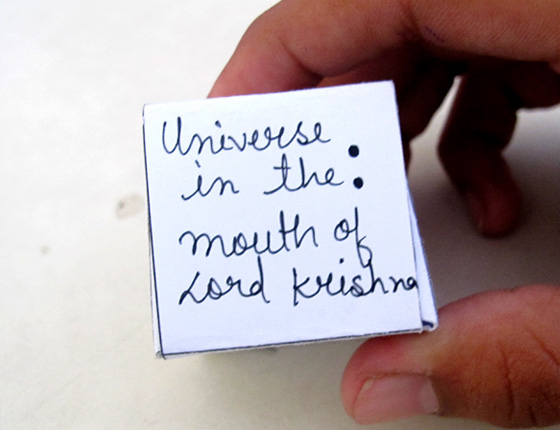 Universe
in the :
mouth of
Lord Krishna